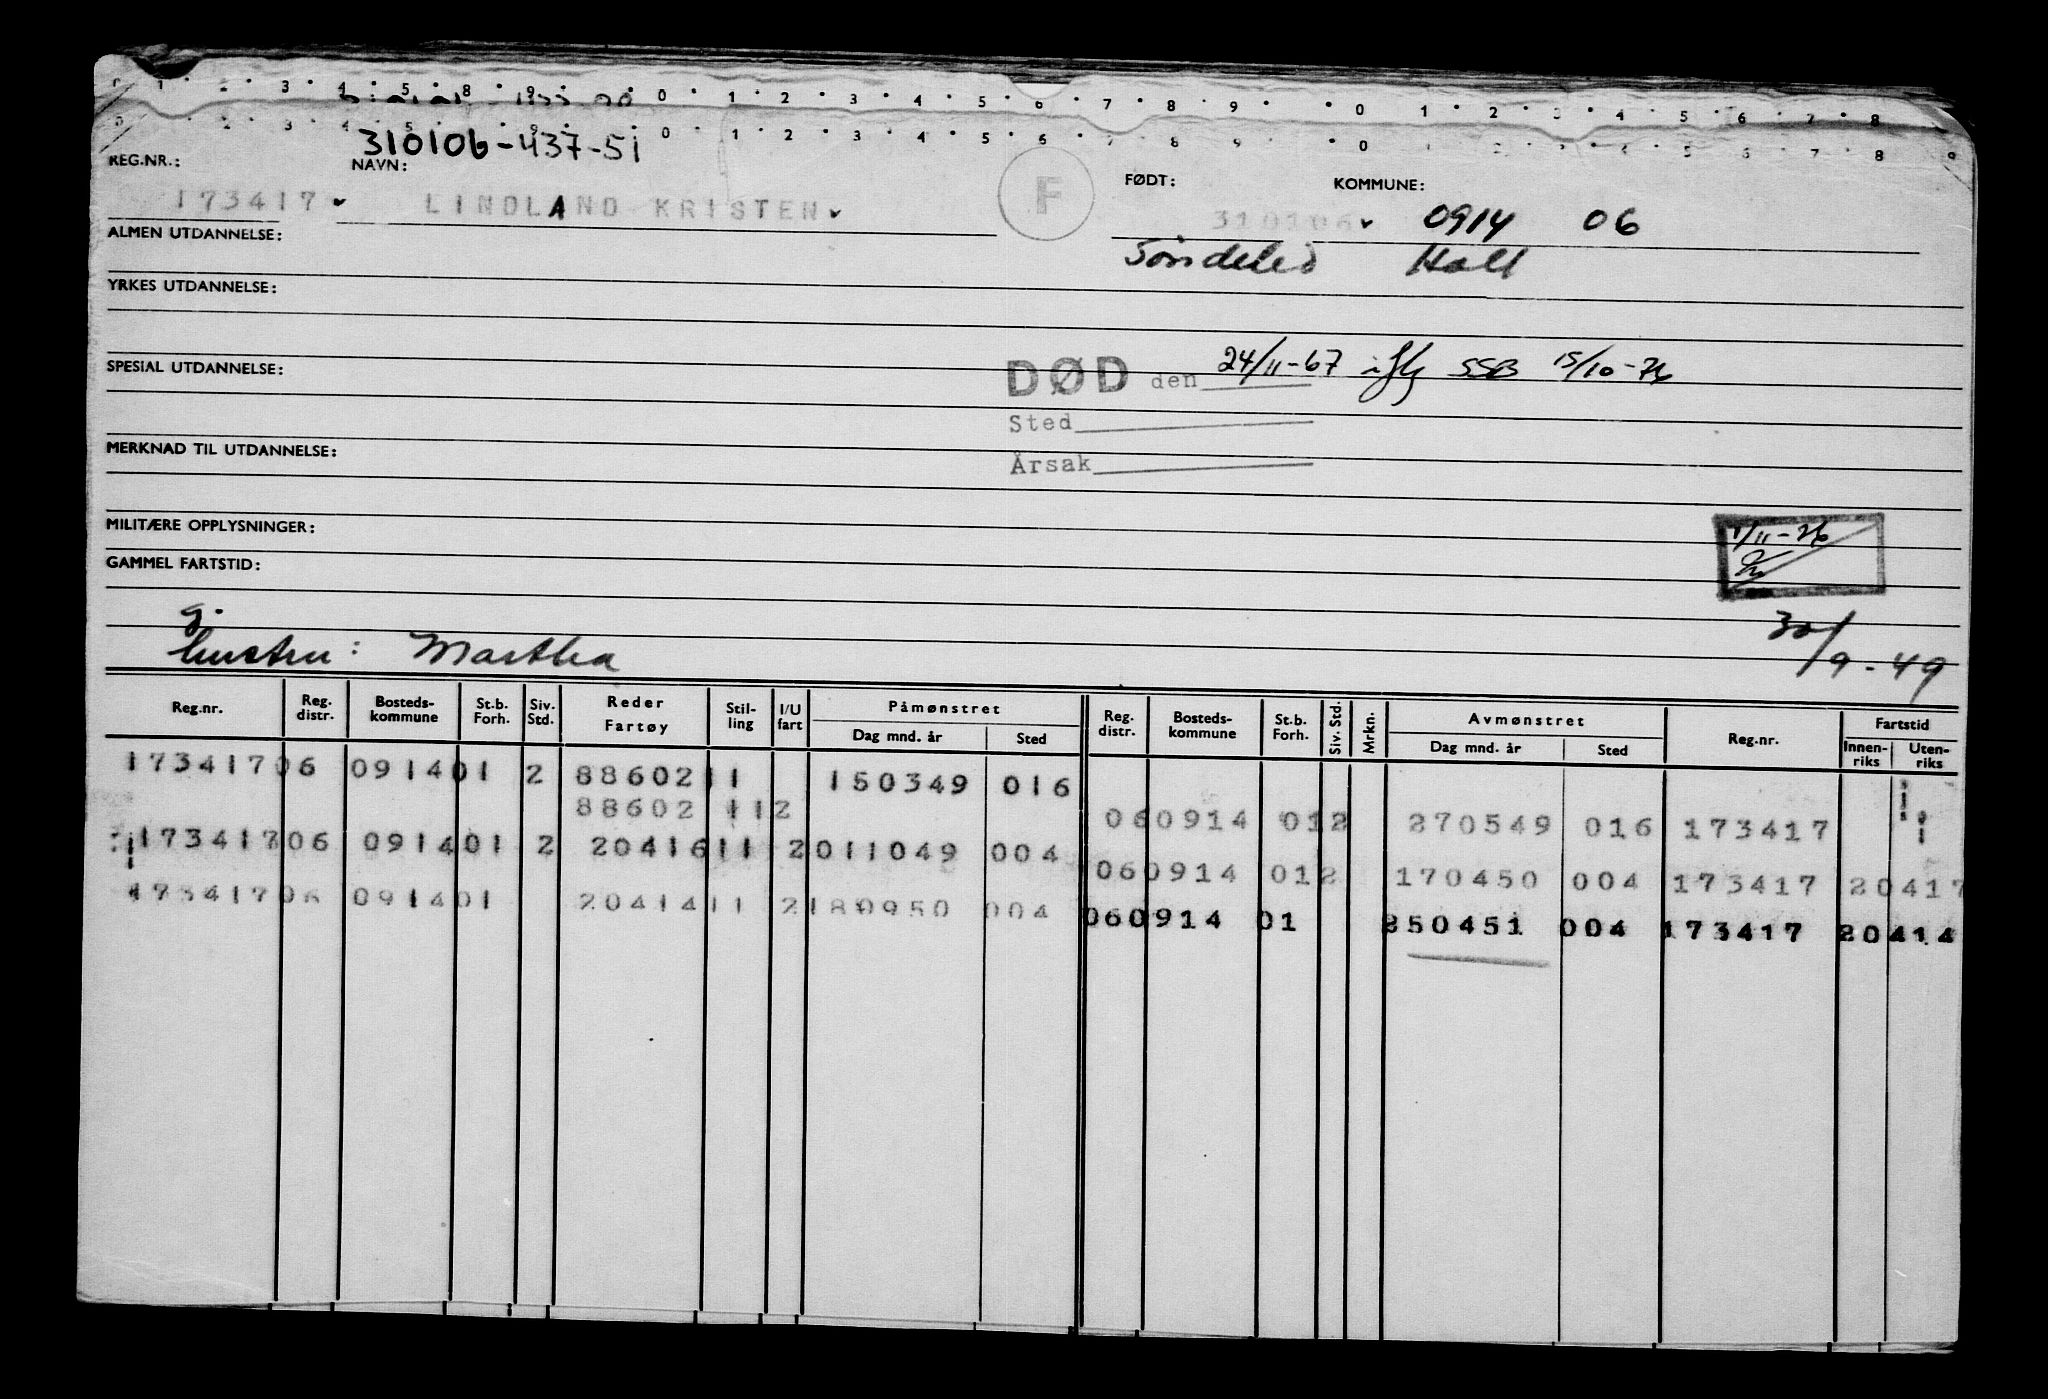 310106-437-51
REG.NR.: NAVN: FØDT: KOMMUNE:
173417 LINDLAND KRISTEN F 310106 0914 06
ALMEN UTDANNELSE: Søndeled Holt
YRKES UTDANNELSE:
SPESIAL UTDANNELSE: DØD den 24/11-67 iflg SSB 15/10-76
Sted
MERKNAD TIL UTDANNELSE: Årsak
MILITÆRE OPPLYSNINGER: 1/11-76
GAMMEL FARTSTID:
g. 30/9-49
hustru: Martha
Reg.nr. Reg. distr. Bosteds-kommune St.b. Forh. Siv. Std. Reder Fartøy Stil-ling I/U fart Påmønstret Dag mnd. år Sted Reg. distr. Bosteds-kommune St.b. Forh. Siv. Std. Mrkn. Avmønstret Dag mnd. år Sted Reg.nr. Fartstid Innen-riks Uten-riks
173417 06 0914 01 2 88602 11 150349 016
88602 11 2 06 0914 01 2 270549 016 173417
173417 06 0914 01 2 20416 11 2 011049 004
06 0914 01 2 170450 004 173417 20417
173417 06 0914 01 20414 11 2 180950 004
06 0914 01 250451 004 173417 20414